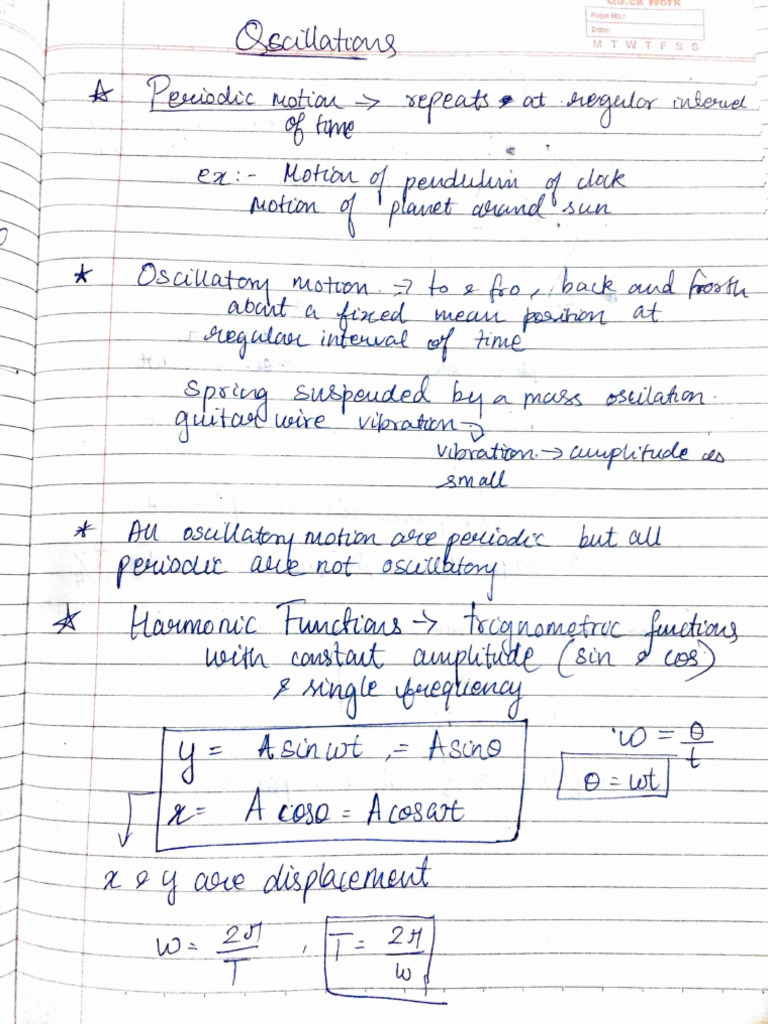 Quick Work
Page No.:
Date:
M T W T F S S
Oscillations
☆ Periodic motion → repeats at regular interval
of time
ex:- Motion of pendulum of clock
Motion of planet around sun
* Oscillatory motion → to & fro, back and froth
about a fixed mean position at
regular interval of time
Spring suspended by a mass oscilation.
guitar wire vibration →
vibration → amplitude is
small
* All oscillatory motion are periodic but all
periodic are not oscillatory
☆ Harmonic Functions → trignometric functions
with constant amplitude (sin & cos)
& single frequency
y = A sin ωt, = A sin θ
ω = θ/t
θ = ωt
x = A cos θ = A cos ωt
x & y are displacement
ω = 2π/T , T = 2π/ω